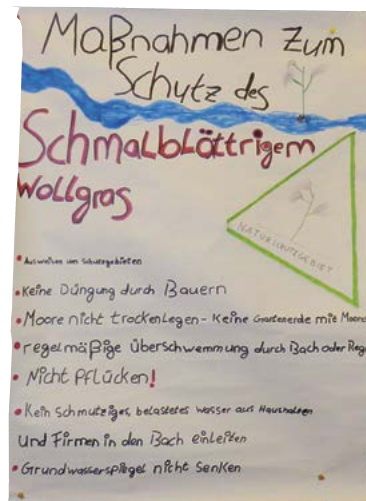 Maßnahmen zum
Schutz des
Schmalblättrigem
Wollgras
NATURSCHUTZGEBIET
• Ausweisen von Schutzgebieten
• Keine Düngung durch Bauern
• Moore nicht trockenlegen - Keine Gartenerde mit Moore
• regelmäßige Überschwemmung durch Bach oder Reg
• Nicht Pflücken!
• Kein schmutziges, belastetes Wasser aus Haushalten
Und Firmen in den Bach einleiten
• Grundwasserspiegel nicht senken